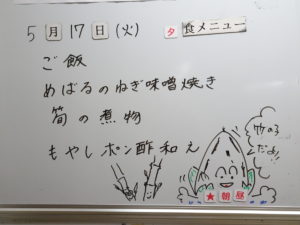 5月17日(火) 夕食メニュー
ご飯
めばるのねぎ味噌焼き
筍の煮物
もやしポン酢和え
竹の子
だよ!
★朝昼